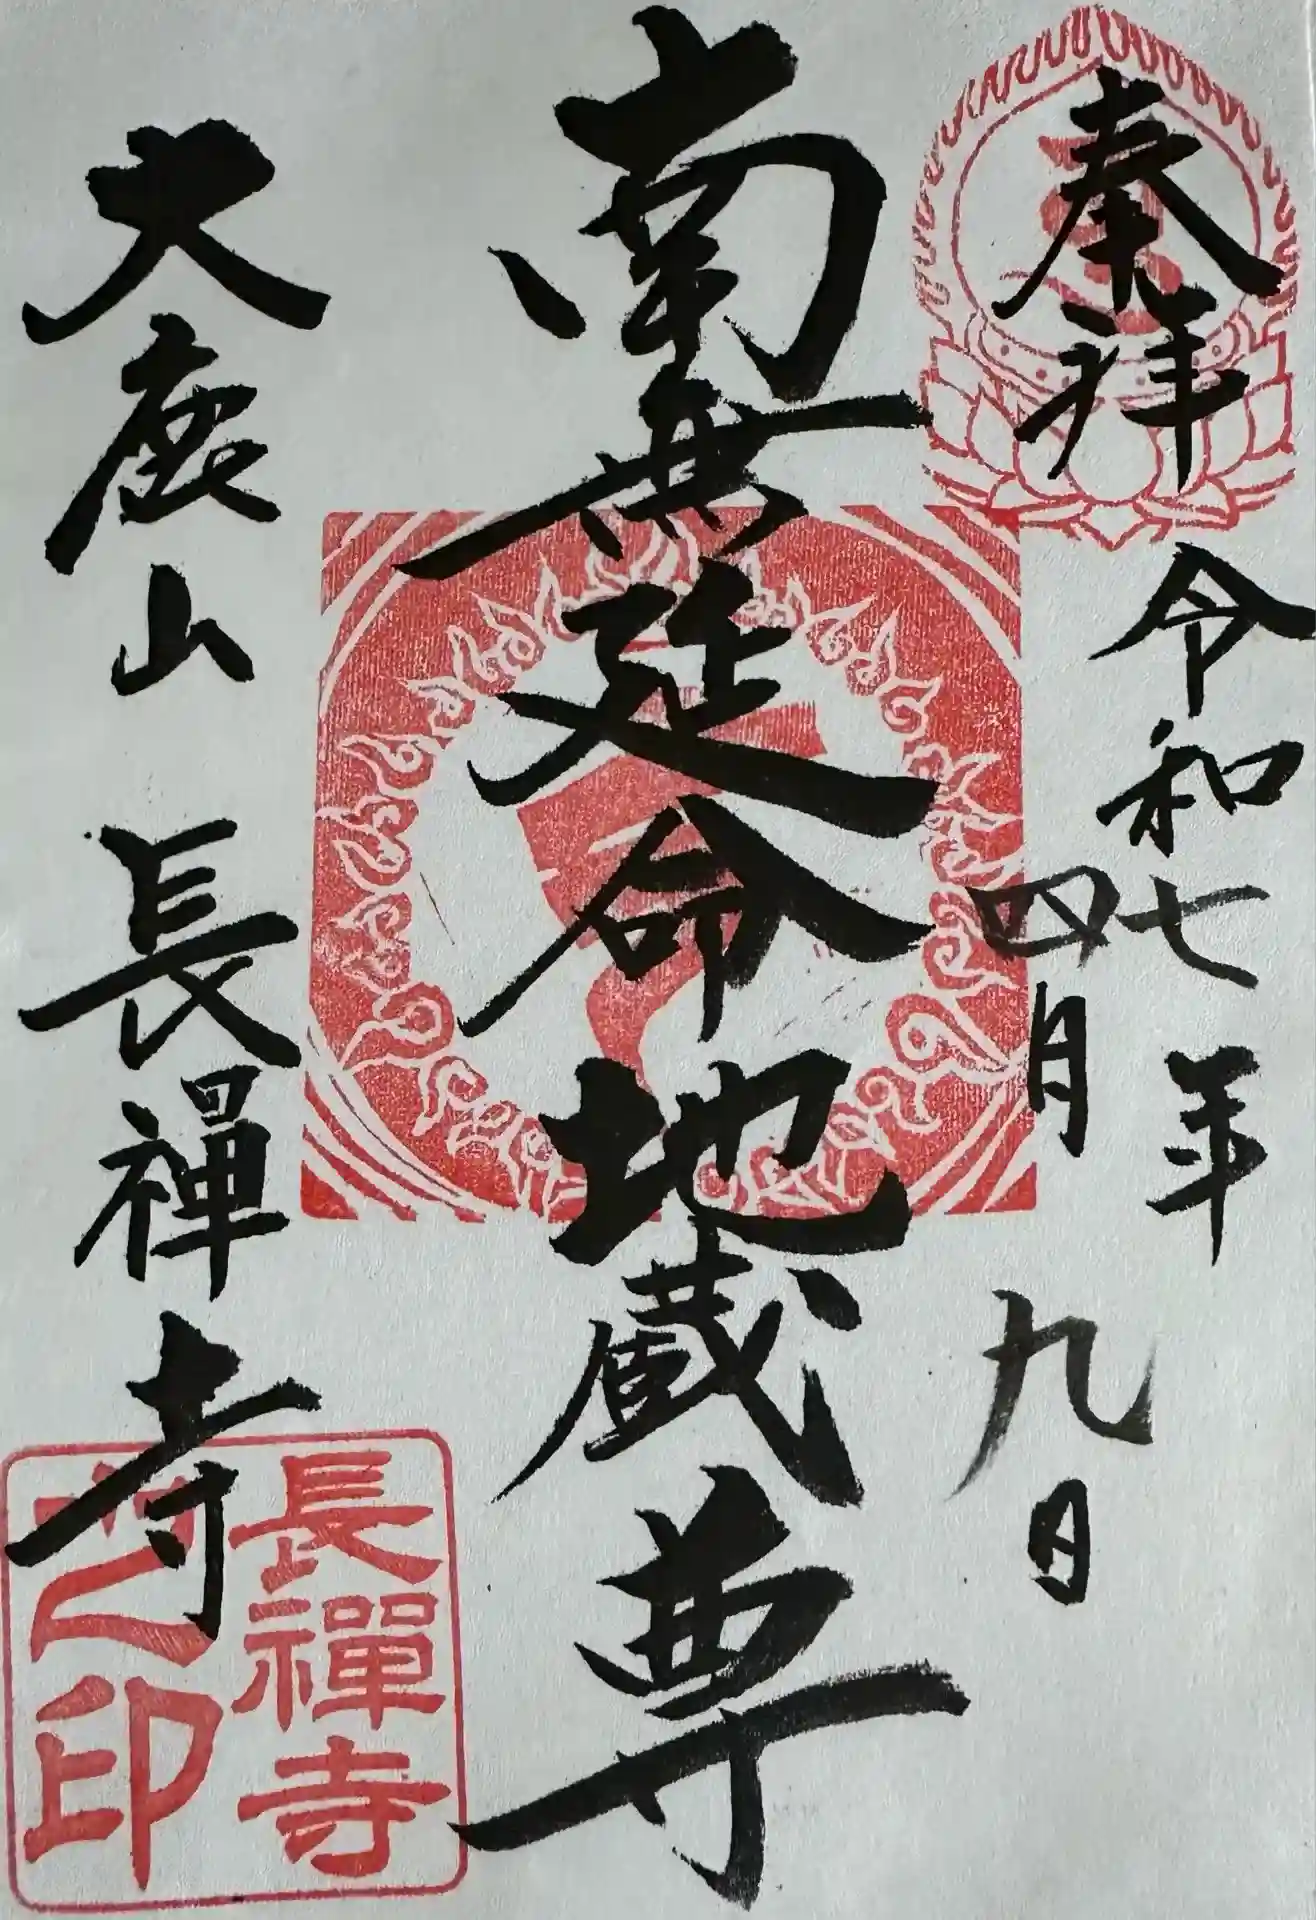 奉拝
令和七年
四月
九日
南無延命地蔵尊
大鹿山 長禪寺
長禪寺
之印